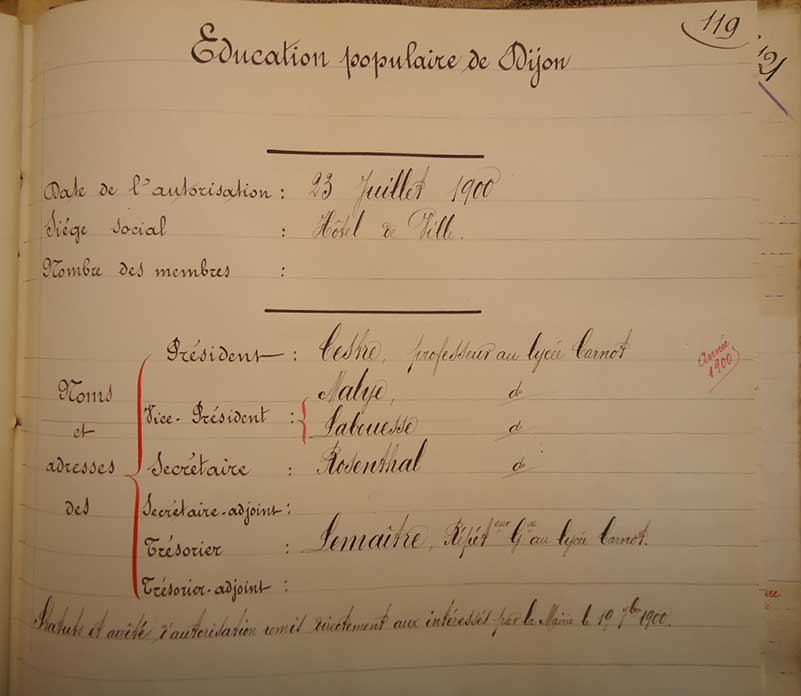 119
121
Education populaire de Dijon
Date de l'autorisation : 23 Juillet 1900
Siége social : Hôtel de Ville.
Nombre des membres :
Président : Ceske, professeur au lycée Carnot
Année 1900
Noms et adresses des
Vice-Président : Malye, d°
Labouesse d°
Secrétaire : Rosenthal d°
Secrétaire-adjoint :
Trésorier : Lemaître, Répéteur Gal au lycée Carnot.
Trésorier-adjoint :
Statuts et arrêté d'autorisation remis directement aux intéressés par la Mairie le 19 7bre 1900.